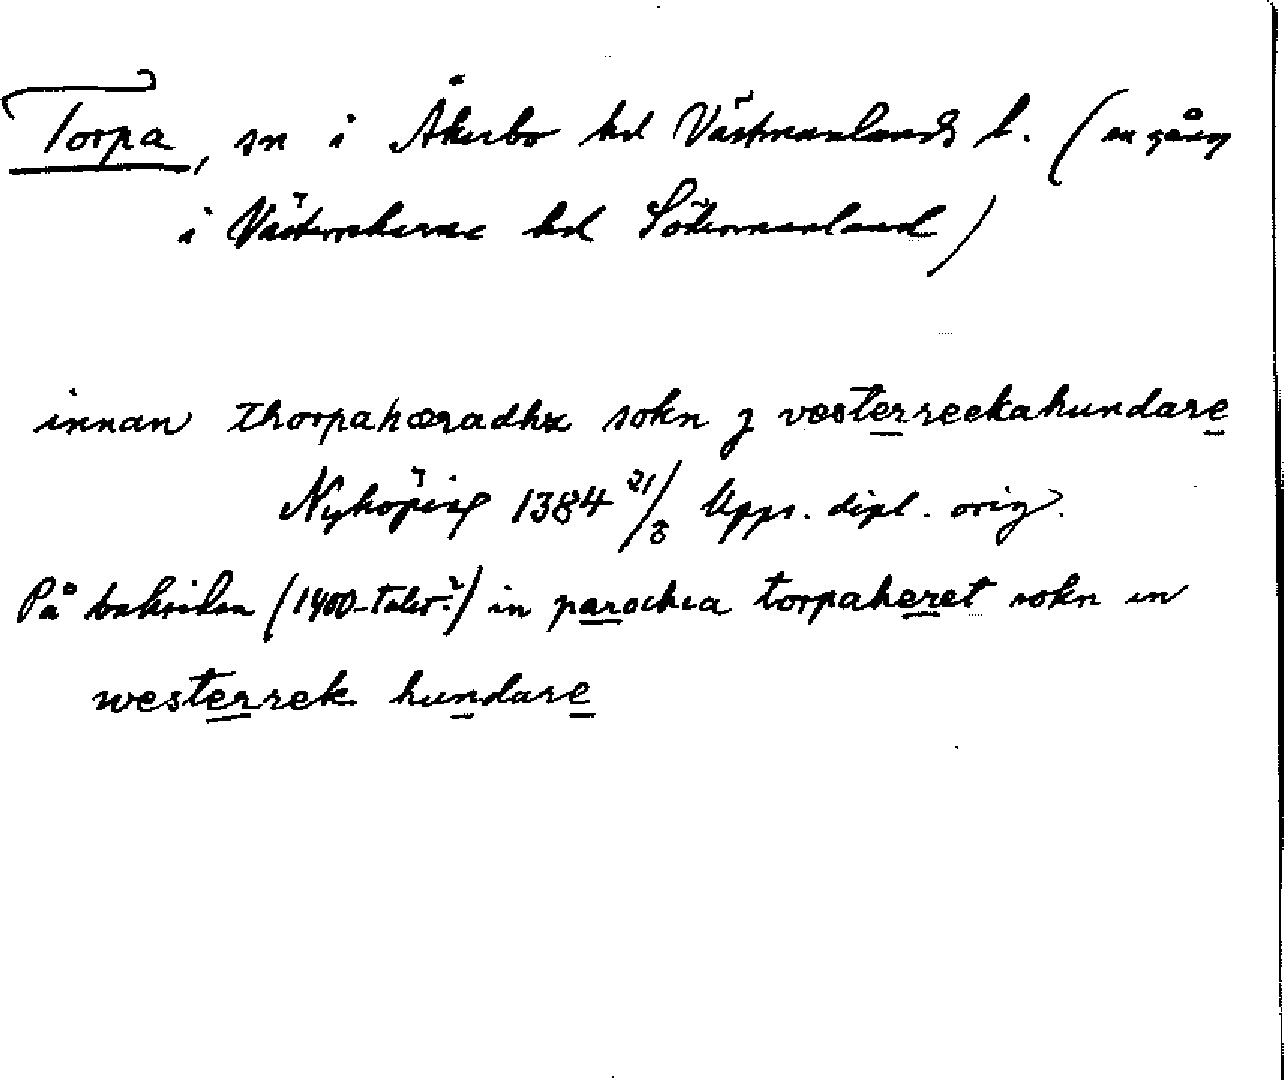 Torpa, sn i Åkerbo hd Västmanlands l. (en gång
i Västerrekarne hd Södermanland)
innan thorpahæradhx sokn j vesterreekahundare
Nyköping 1384 21/8 Upps. dipl. orig.
På baksidan (1400-talet?) in parochia torpaheret sokn in
westerrek hundare